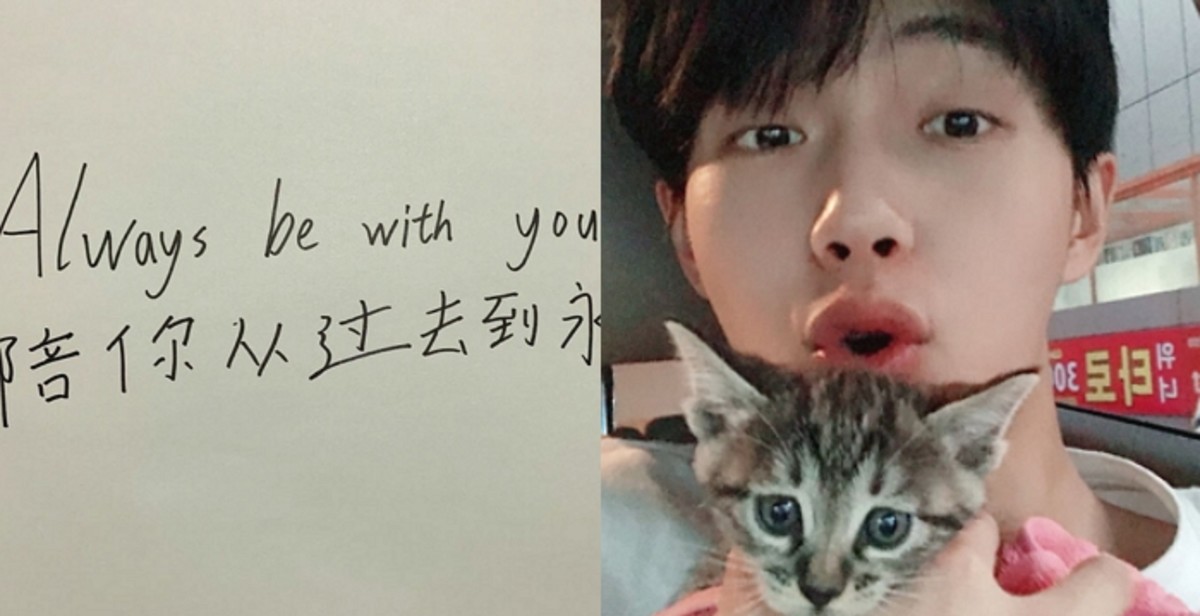 Always be with you
陪你从过去到永
타로